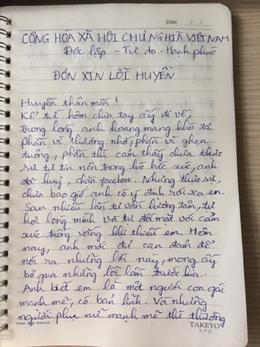 Date
CỘNG HÒA XÃ HỘI CHỦ NGHĨA VIỆT NAM
Độc lập - Tự do - Hạnh phúc
ĐƠN XIN LỖI HUYỀN
Huyền thân mến!
Kể từ hôm chia tay ấy đi về,
trong lòng anh hoang mang khó tả.
Phần vì thương nhớ, phần vì ghen
tuông, phần thì cảm thấy chưa thực
sự tự tin nên trong lúc bức xúc, anh
đã huỷ, chặn facebook. Nhưng thực sự,
chưa bao giờ anh có ý định rời xa em
Sau nhiều lần tự vấn lương tâm, tự
hỏi lòng mình và tự đối mặt với cảm
xúc trống vắng khi thiếu em. Hôm
nay, anh mới đủ can đảm để
nói ra những lời này, mong ấy
bỏ qua những lỗi lầm trước kia.
Anh biết em là một người con gái
mạnh mẽ, có bản lĩnh. Và những
người phụ nữ mạnh mẽ thì thường
TAKEYO